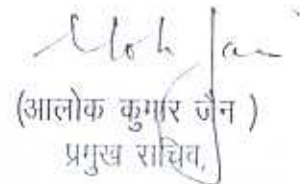 Alok Jain
(आलोक कुमार जैन )
प्रमुख सचिव,